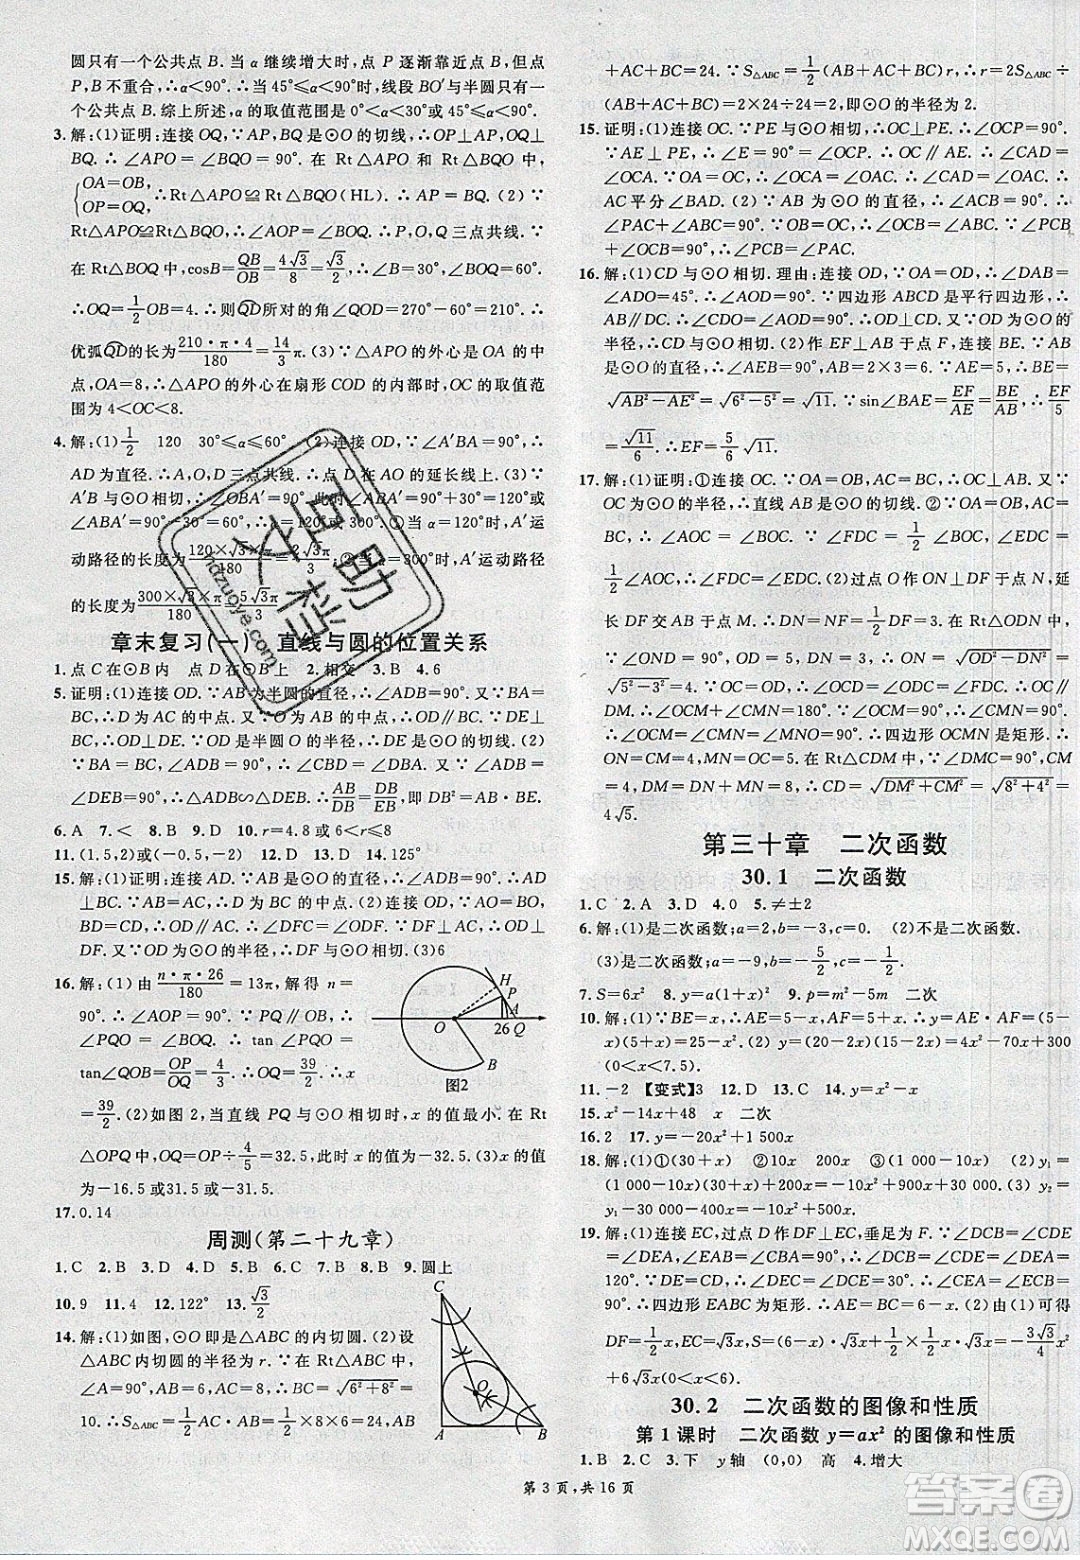 圆只有一个公共点 B. 当 α 继续增大时,点 P 逐渐靠近点 B,但点
P,B 不重合,∴α<90°. ∵当 45°≤α<90°时,线段 BO′与半圆只有一个
公共点 B. 综上所述,α 的取值范围是 0°<α<30°或 45°≤α<90°.
3.解:(1)证明:连接 OQ,∵AP,BQ 是⊙O 的切线,∴OP⊥AP,OQ⊥
BQ. ∴ ∠APO = ∠BQO = 90°. 在 Rt△APO 和 Rt△BQO 中,
{OA=OB, OP=OQ, ∴Rt△APO≌Rt△BQO(HL). ∴ AP = BQ. (2) ∵
Rt△APO≌Rt△BQO,∴∠AOP=∠BOQ. ∴P,O,Q 三点共线. ∵
在 Rt△BOQ 中,cosB=QB/OB=4√3/8=√3/2,∴∠B=30°,∠BOQ=60°.
∴OQ=1/2OB=4. ∴则QD所对的角∠QOD=270°-60°=210°. ∴
优弧QD的长为210·π·4/180=14/3π. (3)∵△APO 的外心是 OA 的中
点,OA=8,∴△APO 的外心在扇形 COD 的内部时,OC 的取值范
围为 4<OC<8.
4.解:(1)1/2 120 30°≤α≤60° (2)连接 OD,∵∠A′BA=90°,∴
AD为直径. ∴A,O,D 三点共线. ∴点 D 在 AO 的延长线上. (3)∵
A′B 与⊙O 相切,∴∠OBA′=90°.此时∠ABA′=90°+30°=120°或
∠ABA′=90°-30°=60°. ∴α=120°或 300°.①当 α=120°时,A′运
动路径的长度为120×√3×π/180=2√3π/3;②当 α=300°时,A′运动路径
的长度为300×√3×π/180=5√3π/3.
章末复习(一) 直线与圆的位置关系
1.点 C 在⊙B 内 点 D 在⊙B 上 2.相交 3.B 4.6
5.证明:(1)连接 OD. ∵AB 为半圆的直径,∴∠ADB=90°. ∵BA=
BC,∴D 为 AC 的中点. ∵O 为 AB 的中点,∴OD∥BC. ∵DE⊥
BC,∴OD⊥DE. ∵OD 是半圆 O 的半径,∴DE 是⊙O 的切线. (2)
∵BA = BC, ∠ADB = 90°, ∴ ∠CBD = ∠ABD. ∵ ∠ADB =
∠DEB=90°,∴△ADB∽△DEB. ∴AB/DB=DB/EB. ∴BD²=AB·BE.
6.A 7.< 8.B 9.D 10.r=4.8或6<r≤8
11.(1.5,2)或(-0.5,-2) 12.D 13.D 14.125°
15.解:(1)∠CBD=∠CEB. (2)证明:连接 OD,OC,∵AO=BO,
BD=CD,∴OD∥AC. ∵DF⊥AC,∴∠DFC=∠ODF=90°.
∴OD⊥DF. ∵OD 是⊙O 的半径,∴DF 与⊙O 相切.(3)6
16.解:(1)由n·π·26/180=13π,解得 n=
90°. ∴ ∠POQ = 90°. ∵ PQ ∥ OB, ∴
∠PQO = ∠BOQ. ∴ tan ∠PQO =
tan∠QOB=OP/OQ=2/3. ∴ OQ = 39/2. ∴ x
=39/2. (2)如图2,当直线 PQ 与⊙O 相切时,x 的值最小.在 Rt
△OPQ 中,OQ=OP÷4/5=32.5,此时 x 的值为-32.5.(3)x 的值
为-16.5或31.5或-31.5.
17.0.14
H P O 26 A Q B
图2
周测(第二十九章)
1.C 2.B 3.D 4.D 5.B 6.C 7.B 8.B 9.圆上
10.9 11.4 12.122° 13.√3/2
14.解:(1)如图,⊙O 即是△ABC 的内切圆. (2)设
△ABC 内切圆的半径为 r. ∵ Rt△ABC 中,
∠A=90°,AC=6,AB=8,∴BC=√6²+8²=
10. ∴S△ABC=1/2 AC·AB=1/2×8×6=24,AB
C O A B
+AC+BC=24. ∵S△ABC=1/2(AB+AC+BC)r,∴r=2S△ABC÷
(AB+AC+BC)=2×24÷24=2. ∴⊙O 的半径为 2.
15.证明:(1)连接 OC. ∵PE 与⊙O 相切,∴OC⊥PE. ∴∠OCP=90°.
∵AE⊥PE,∴∠E=90°=∠OCP. ∴OC∥AE. ∴∠CAD=
∠OCA. ∵OA=OC,∴∠OCA=∠OAC. ∴∠CAD=∠OAC. ∴
AC平分∠BAD. (2)∵AB 为⊙O 的直径,∴∠ACB=90°. ∴
∠PAC+∠ABC=90°. ∵OB=OC,∴∠OCB=∠OBC. ∵
∠PCB+∠OCB=90°,∴∠PCB=∠PAC.
16.解:(1)CD 与⊙O 相切.理由:连接 OD,∵OA=OD,∴∠DAB=
∠ADO=45°. ∴∠AOD=90°. ∵四边形 ABCD 是平行四边形,∴
AB∥DC. ∴∠CDO=∠AOD=90°. ∴OD⊥CD. ∵OD 为⊙O 的
半径,∴CD 与⊙O 相切. (2)作 EF⊥AB 于点 F,连接 BE. ∵AB
是⊙O 的直径,∴∠AEB=90°,AB=2×3=6. ∵AE=5,∴BE=
√AB²-AE²=√6²-5²=√11. ∵sin∠BAE=EF/AE=BE/AB, ∴EF/5
=√11/6. ∴EF=5/6√11.
17.解:(1)证明:①连接 OC,∵OA=OB,AC=BC,∴OC⊥AB. 又∵
OC 为⊙O 的半径,∴直线 AB 是⊙O 的切线. ②∵OA=OB,AC=
BC, ∴ ∠AOC = ∠BOC. ∵ ∠FDC = 1/2∠FOC, ∠EDC =
1/2∠AOC,∴∠FDC=∠EDC. (2)过点 O 作 ON⊥DF 于点 N,延
长 DF 交 AB 于点 M. ∵ON⊥DF,∴DN=NF=4. 在 Rt△ODN
中,∵∠OND=90°,OD=5,DN=4,∴ON=√OD²-DN²=
√5²-4²=3. ∵∠FDC=∠EDC=∠OCD,∴OC∥
DM. ∴∠OCM+∠CMN=180°. ∵∠OCM=90°,∴∠OCM=
∠CMN=∠MNO=90°. ∴四边形 OCMN 是矩形. ∴
ON=CM=3,MN=OC=5. 在 Rt△CDM 中,∵∠DMC=90°,CM
=3,DM=DN+MN=9,∴CD=√DM²+CM²=
第三十章 二次函数
30.1 二次函数
1.C 2.A 3.D 4.0 5.≠±2
6.解:(1)是二次函数;a=2,b=-3,c=0. (2)不是二次函数.
(3)是二次函数;a=-9,b=-5/2,c=1/2.
7.S=6x² 8.y=a(1+x)² 9.p=m²-5m 二次
10.解:(1)∵BE=x,∴AE=5-x,AF=5+x. ∴y=AE·AF=(5-
x)(5+x)=25-x²(0<x<5). (2)y=(20-2x)(15-2x)=4x²-70x+300
(0<x<7.5).
11.-2 【变式】3 12.D 13.C 14.y=x²-x
15.x²-14x+48 x 二次
16.2 17.y=-20x²+1 500x
18.解:(1)①(30+x) ②10x 200x ③(1 000-10x) (2) y₁=
(1 000-10x)(30+x)=-10x²+700x+30 000. (3) y₂=-10x²+
700x+30 000-30×1 000-200x-400=-10x²+500x-400.
19.解:(1)连接 EC,过点 D 作 DF⊥EC,垂足为 F. ∵∠DCB=∠CDE
=∠DEA,∠EAB=∠CBA=90°,∴∠DCB=∠CDE=∠DEA=
120°. ∵DE=CD,∴∠DEC=∠DCE=30°. ∴∠CEA=∠ECB=
90°. ∴四边形 EABC 为矩形. ∴AE=BC=6-x. (2)由(1)可得
DF=1/2x,EC=√3x. S=(6-x)·√3x+1/2x·√3x·1/2=-3√3/4x²+
6√3x(0<x<6).
30.2 二次函数的图像和性质
第 1 课时 二次函数 y=ax² 的图像和性质
1.B 2.C 3.下 y轴 (0,0) 高 4.增大
第 3 页,共 16 页
hdzuoye.com
答案圈
MXQE.COM